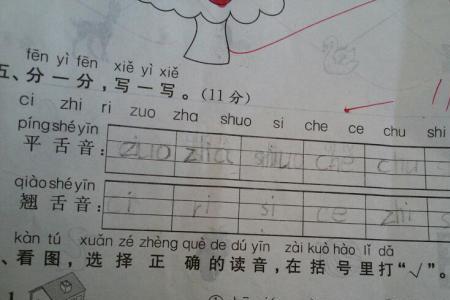 fēn yì fēn xiě yì xiě
五、分一分，写一写。(11分)
ci zhi ri zuo zha shuo si che ce chu shi
píngshéyīn
平舌音: zuo zha shuo che chu
qiàoshéyīn
翘舌音: ci ri si ce zhi s
kàn tú xuǎn zé zhèng què de dú yīn zài kuò hào lǐ dǎ
、看图，选择正确的读音，在括号里打“√”。